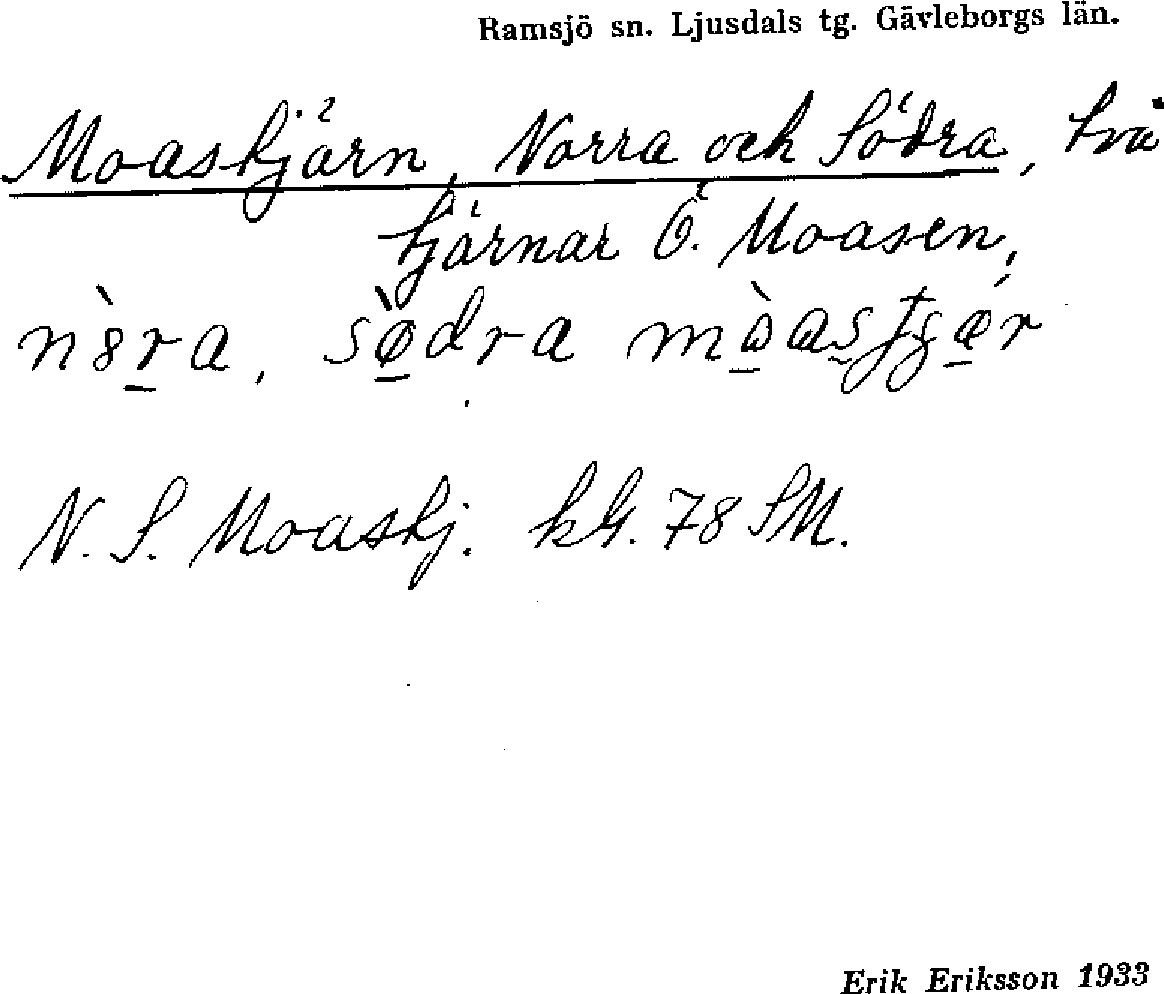 Ramsjö sn. Ljusdals tg. Gävleborgs län.
Moastjärn, Norra och Södra, två
tjärnar Ö. Moasen,
södra
N. S. Moastj. kbl. 78 SM.
Erik Eriksson 1933